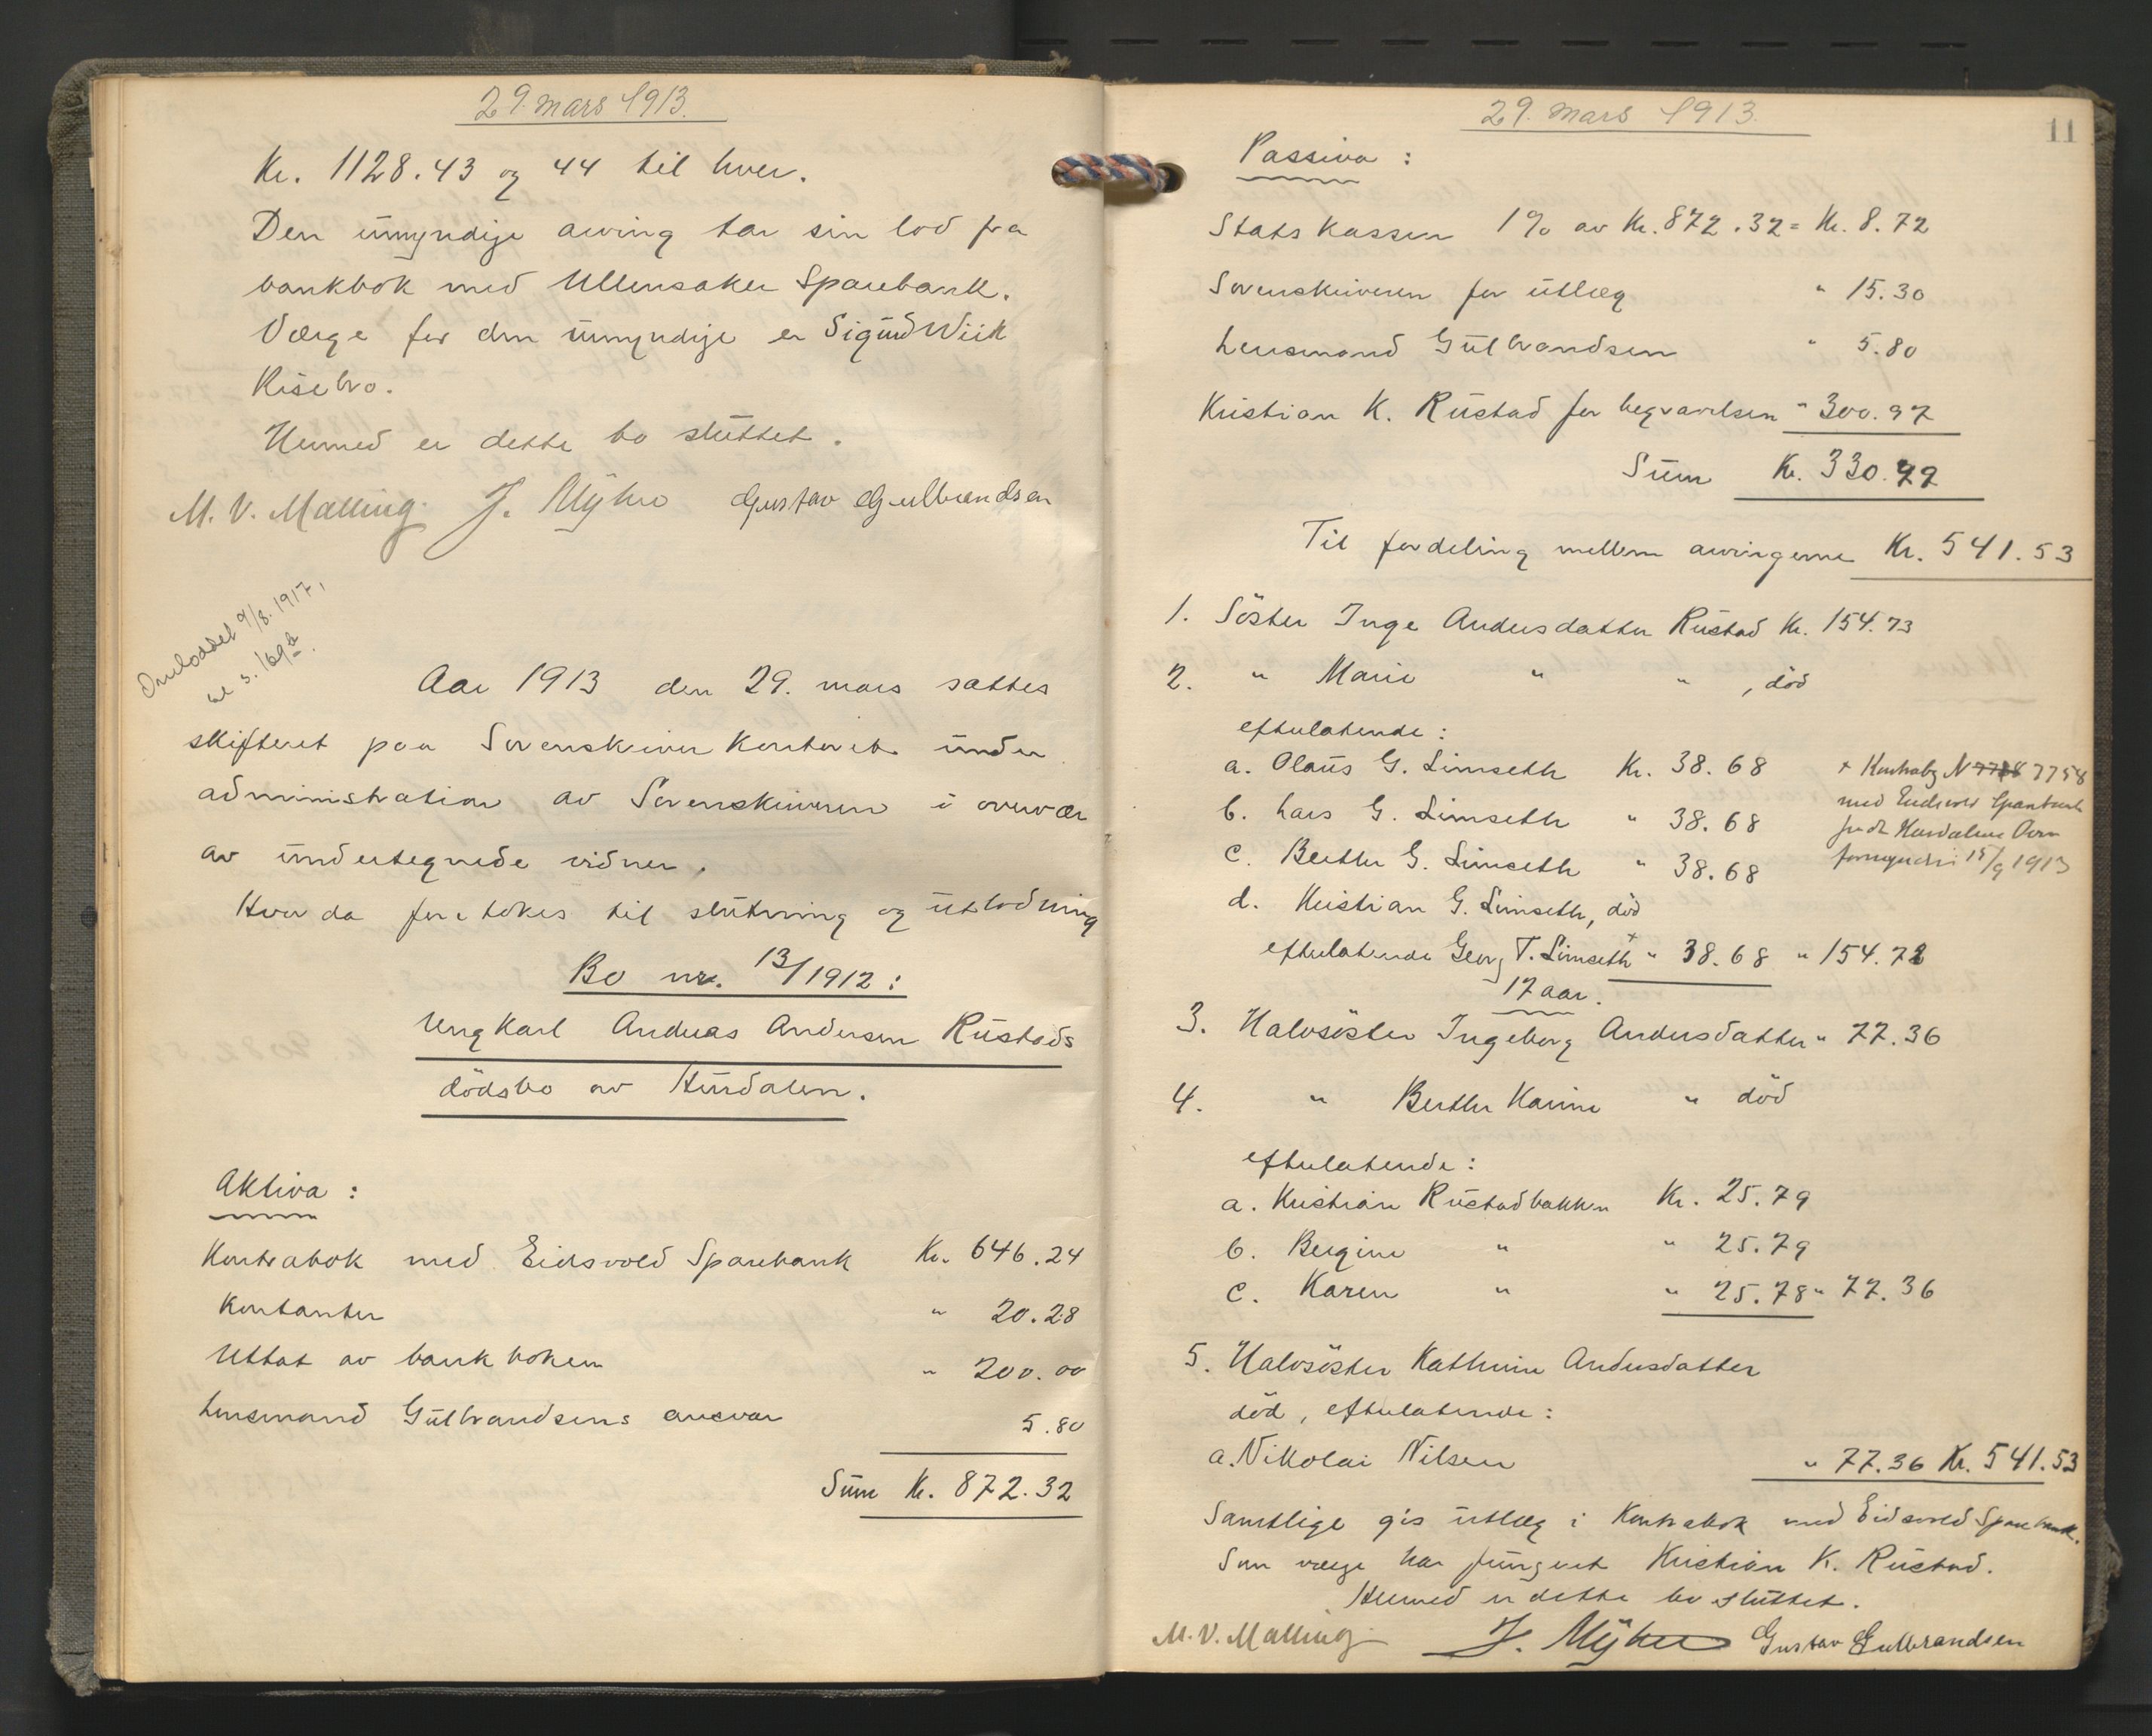 29. mars 1913.
Kr. 1128.43 og 44 til hver.
Den umyndige arving tar sin lod fra
bankbok med Ullensaker Sparebank.
Verge for den umyndige er Sigurd Wiik
Risebro.
Hermed er dette bo sluttet.
M. V. Malling. J. Myhre Gustav Gulbrandsen
Omloddet 9/8. 1917,
se s. 169b.
Aar 1913 den 29. mars sattes
skifteret paa Sorenskriverkontoret under
administration av Sorenskriveren i overvær
av undertegnede vidner.
Hvor da foretokes til slutning og utlodning
Bo nr. 13/1912:
Ungkarl Andreas Andersen Rustads
dödsbo av Hurdalen.
Aktiva:
Kontrabok med Eidsvold Sparebank Kr. 646.24
Kontanter " 20.28
Uttat av bankboken " 200.00
Lensmand Gulbrandsens ansvar 5.80
Sum Kr. 872.32
29. mars 1913.
11
Passiva:
Statskassen 1% av Kr. 872.32 = Kr. 8.72
Sorenskriveren for utlæg " 15.30
Lensmand Gulbrandsen " 5.80
Kristian K. Rustad for begravelsen " 300.97
Sum Kr. 330.79
Til fordeling mellem arvingerne Kr. 541.53
1. Söster Inge Andersdatter Rustad Kr. 154.73
2. " Marie " " , död
efterlatende:
a. Olaus G. Limseth Kr. 38.68
b. Lars G. Limseth " 38.68
c. Berthe G. Limseth " 38.68
d. Kristian G. Limseth, död
efterlatende Georg T. Limseth + " 38.68 " 154.72
17 aar.
+ Kontrabg N 7758
med Eidsvold Sparebank
fra dt Hurdalens Over
formynderi 15/9 1913
3. Halvsöster Ingeborg Andersdatter " 77.36
4. " Berthe Karine " död
efterlatende:
a. Kristian Rustadbakken Kr. 25.79
b. Bergine " " 25.79
c. Karen " " 25.78 " 77.36
5. Halvsöster Kathrine Andersdatter
död, efterlatende:
a. Nikolai Nilsen " 77.36 Kr. 541.53
Samtlige gis utlæg i Kontrabok med Eidsvold Sparebank.
Som verge har fungert Kristian K. Rustad.
Hermed er dette bo sluttet.
M. V. Malling J. Myhre Gustav Gulbrandsen